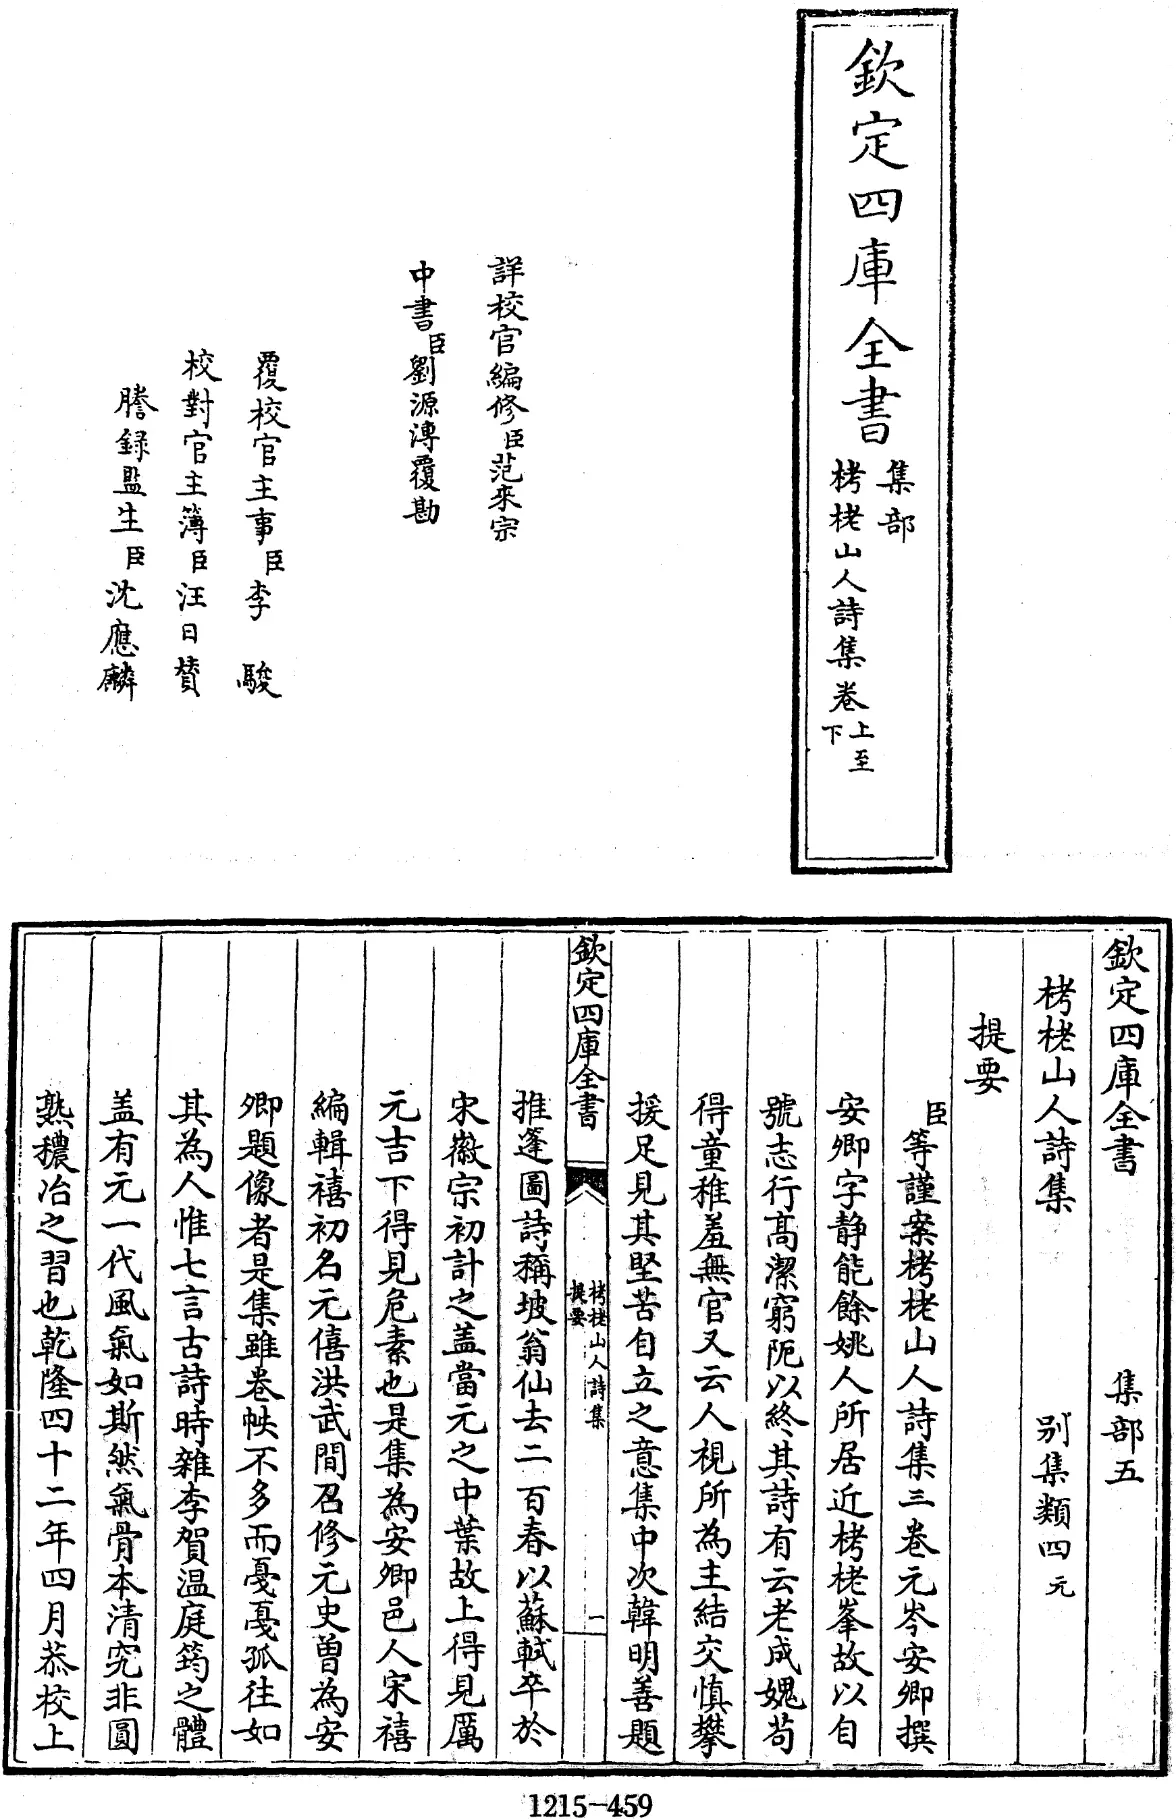 欽定四庫全書
集部
栲栳山人詩集卷上至下
詳校官編修臣范來宗
中書臣劉源溥覆勘
覆校官主事臣李 駿
校對官主簿臣汪日贊
謄録監生臣沈應麟
欽定四庫全書 集部五
栲栳山人詩集 别集類四元
提要
臣等謹案栲栳山人詩集三卷元岑安卿撰
安卿字静能餘姚人所居近栲栳峯故以自
號志行高潔窮阨以終其詩有云老成媿苟
得童稚羞無官又云人視所為主結交慎攀
援足見其堅苦自立之意集中次韓明善題
欽定四庫全書
栲栳山人詩集
提要
一
推篷圖詩稱坡翁仙去二百春以蘇軾卒於
宋徽宗初計之盖當元之中葉故上得見厲
元吉下得見危素也是集為安卿邑人宋禧
編輯禧初名元僖洪武間召修元史曾為安
卿題像者是集雖卷帙不多而戞戞孤往如
其為人惟七言古詩時雜李賀温庭筠之體
盖有元一代風氣如斯然氣骨本清究非圓
熟穠冶之習也乾隆四十二年四月恭校上
1215-459